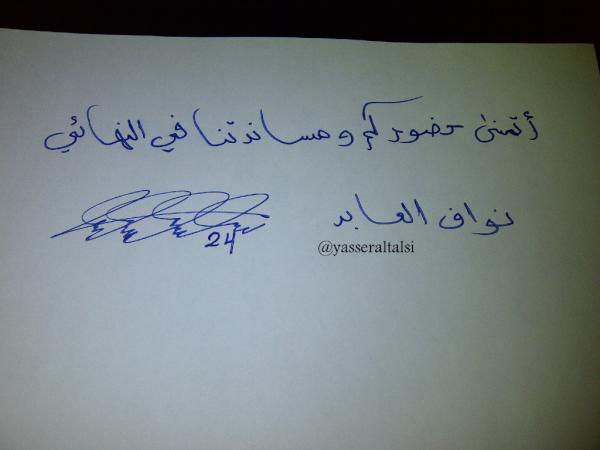 أتمنى حضوركم ومساندتنا في النهائي
نواف العابد
24
@yasseraltalsi